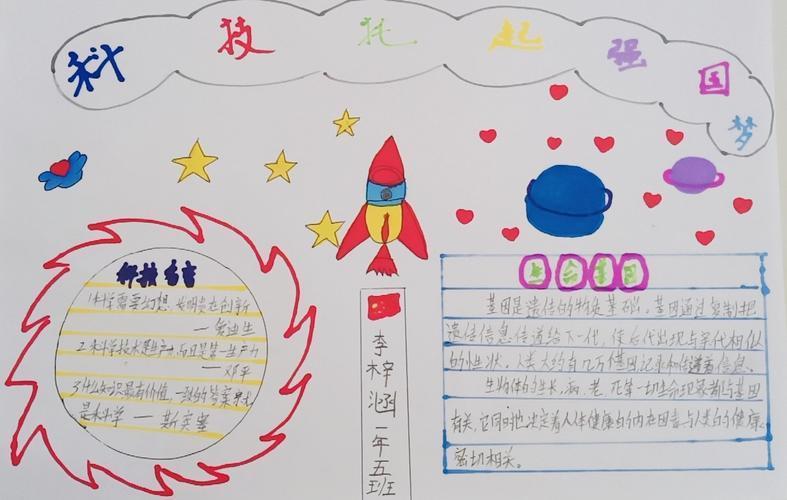 科技托起强国梦
科技名言
1.科学需要幻想,发明贵在创新
—爱迪生
2.科学技术是生产力,而且是第一生产力
—邓平
3.什么知识最有价值,一致的答案就
是科学 — 斯宾塞
李梓涵 一年五班
基因是遗传的物质基础。基因通过复制把
遗传信息传递给下一代,使后代出现与亲代相似
的性状。人类大约有几万个基因记录和传递着信息。
生物体的生长、病、老、死等一切生命现象都与基因
有关,它同时也决定着人体健康的内在因素与人类的健康
密切相关。